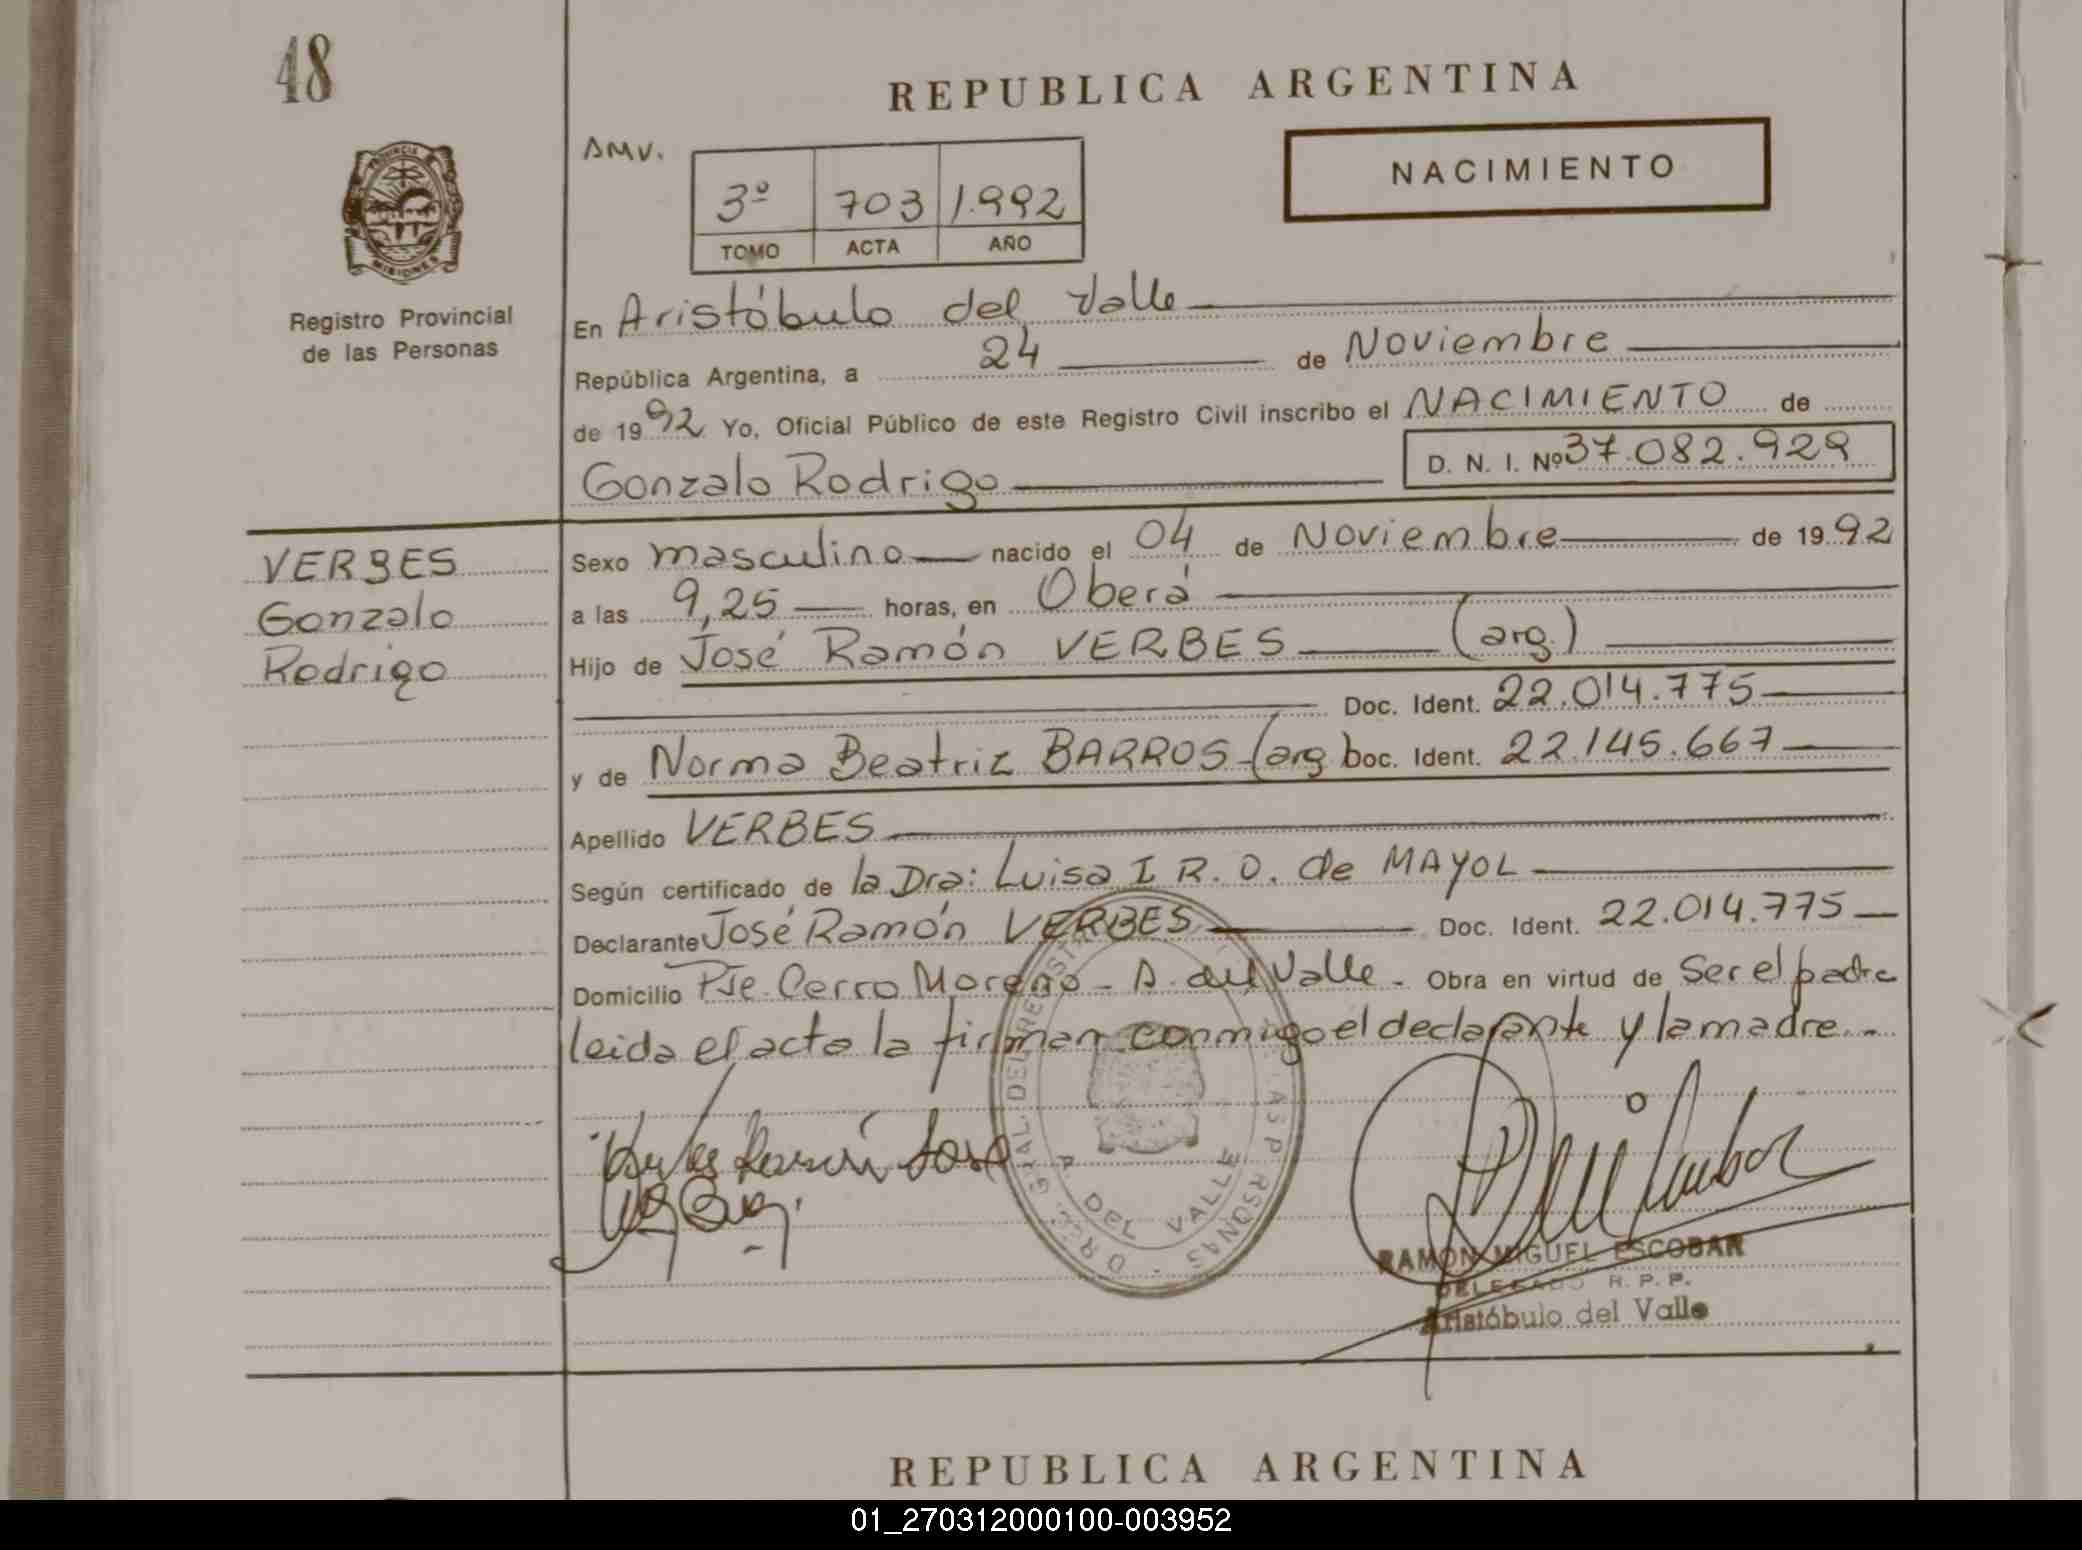 48
REPUBLICA ARGENTINA
AMV.
3º 703 1.992
TOMO ACTA AÑO
NACIMIENTO
PROVINCIA
MISIONES
Registro Provincial
de las Personas
En Aristóbulo del Valle
República Argentina, a 24 de Noviembre
de 1992 Yo, Oficial Público de este Registro Civil inscribo el NACIMIENTO de
Gonzalo Rodrigo D. N. I. Nº 37.082.929
VERBES
Gonzalo
Rodrigo
Sexo masculino nacido el 04 de Noviembre de 1992
a las 9,25 horas, en Oberá
Hijo de José Ramón VERBES (arg.)
Doc. Ident. 22.014.775
y de Norma Beatriz BARROS (arg Doc. Ident. 22.145.667
Apellido VERBES
Según certificado de la Dra: Luisa I R. O. de MAYOL
Declarante José Ramón VERBES Doc. Ident. 22.014.775
Domicilio Pje. Cerro Moreno - A. del Valle - Obra en virtud de Ser el padre
leida el acta la firman conmigo el declarante y la madre.-
DEL VALLE
RAMON MIGUEL ESCOBAR
DELEGADO R. P. P.
Aristóbulo del Valle
REPUBLICA ARGENTINA
01_270312000100-003952